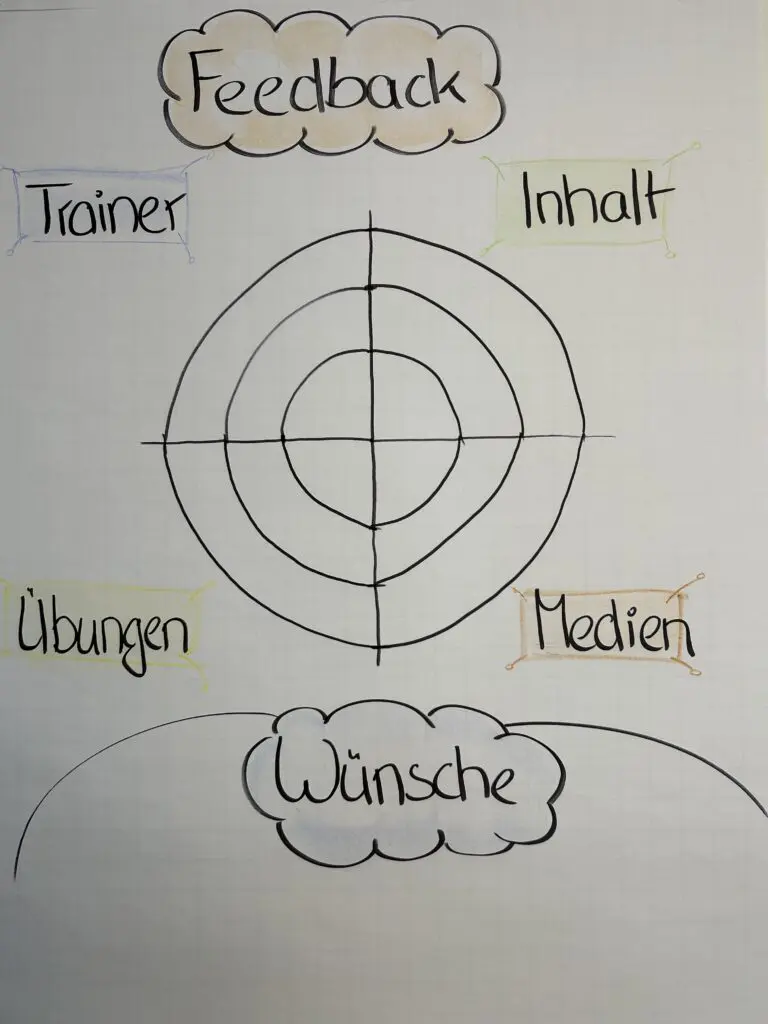 Feedback
Trainer
Inhalt
Übungen
Medien
Wünsche